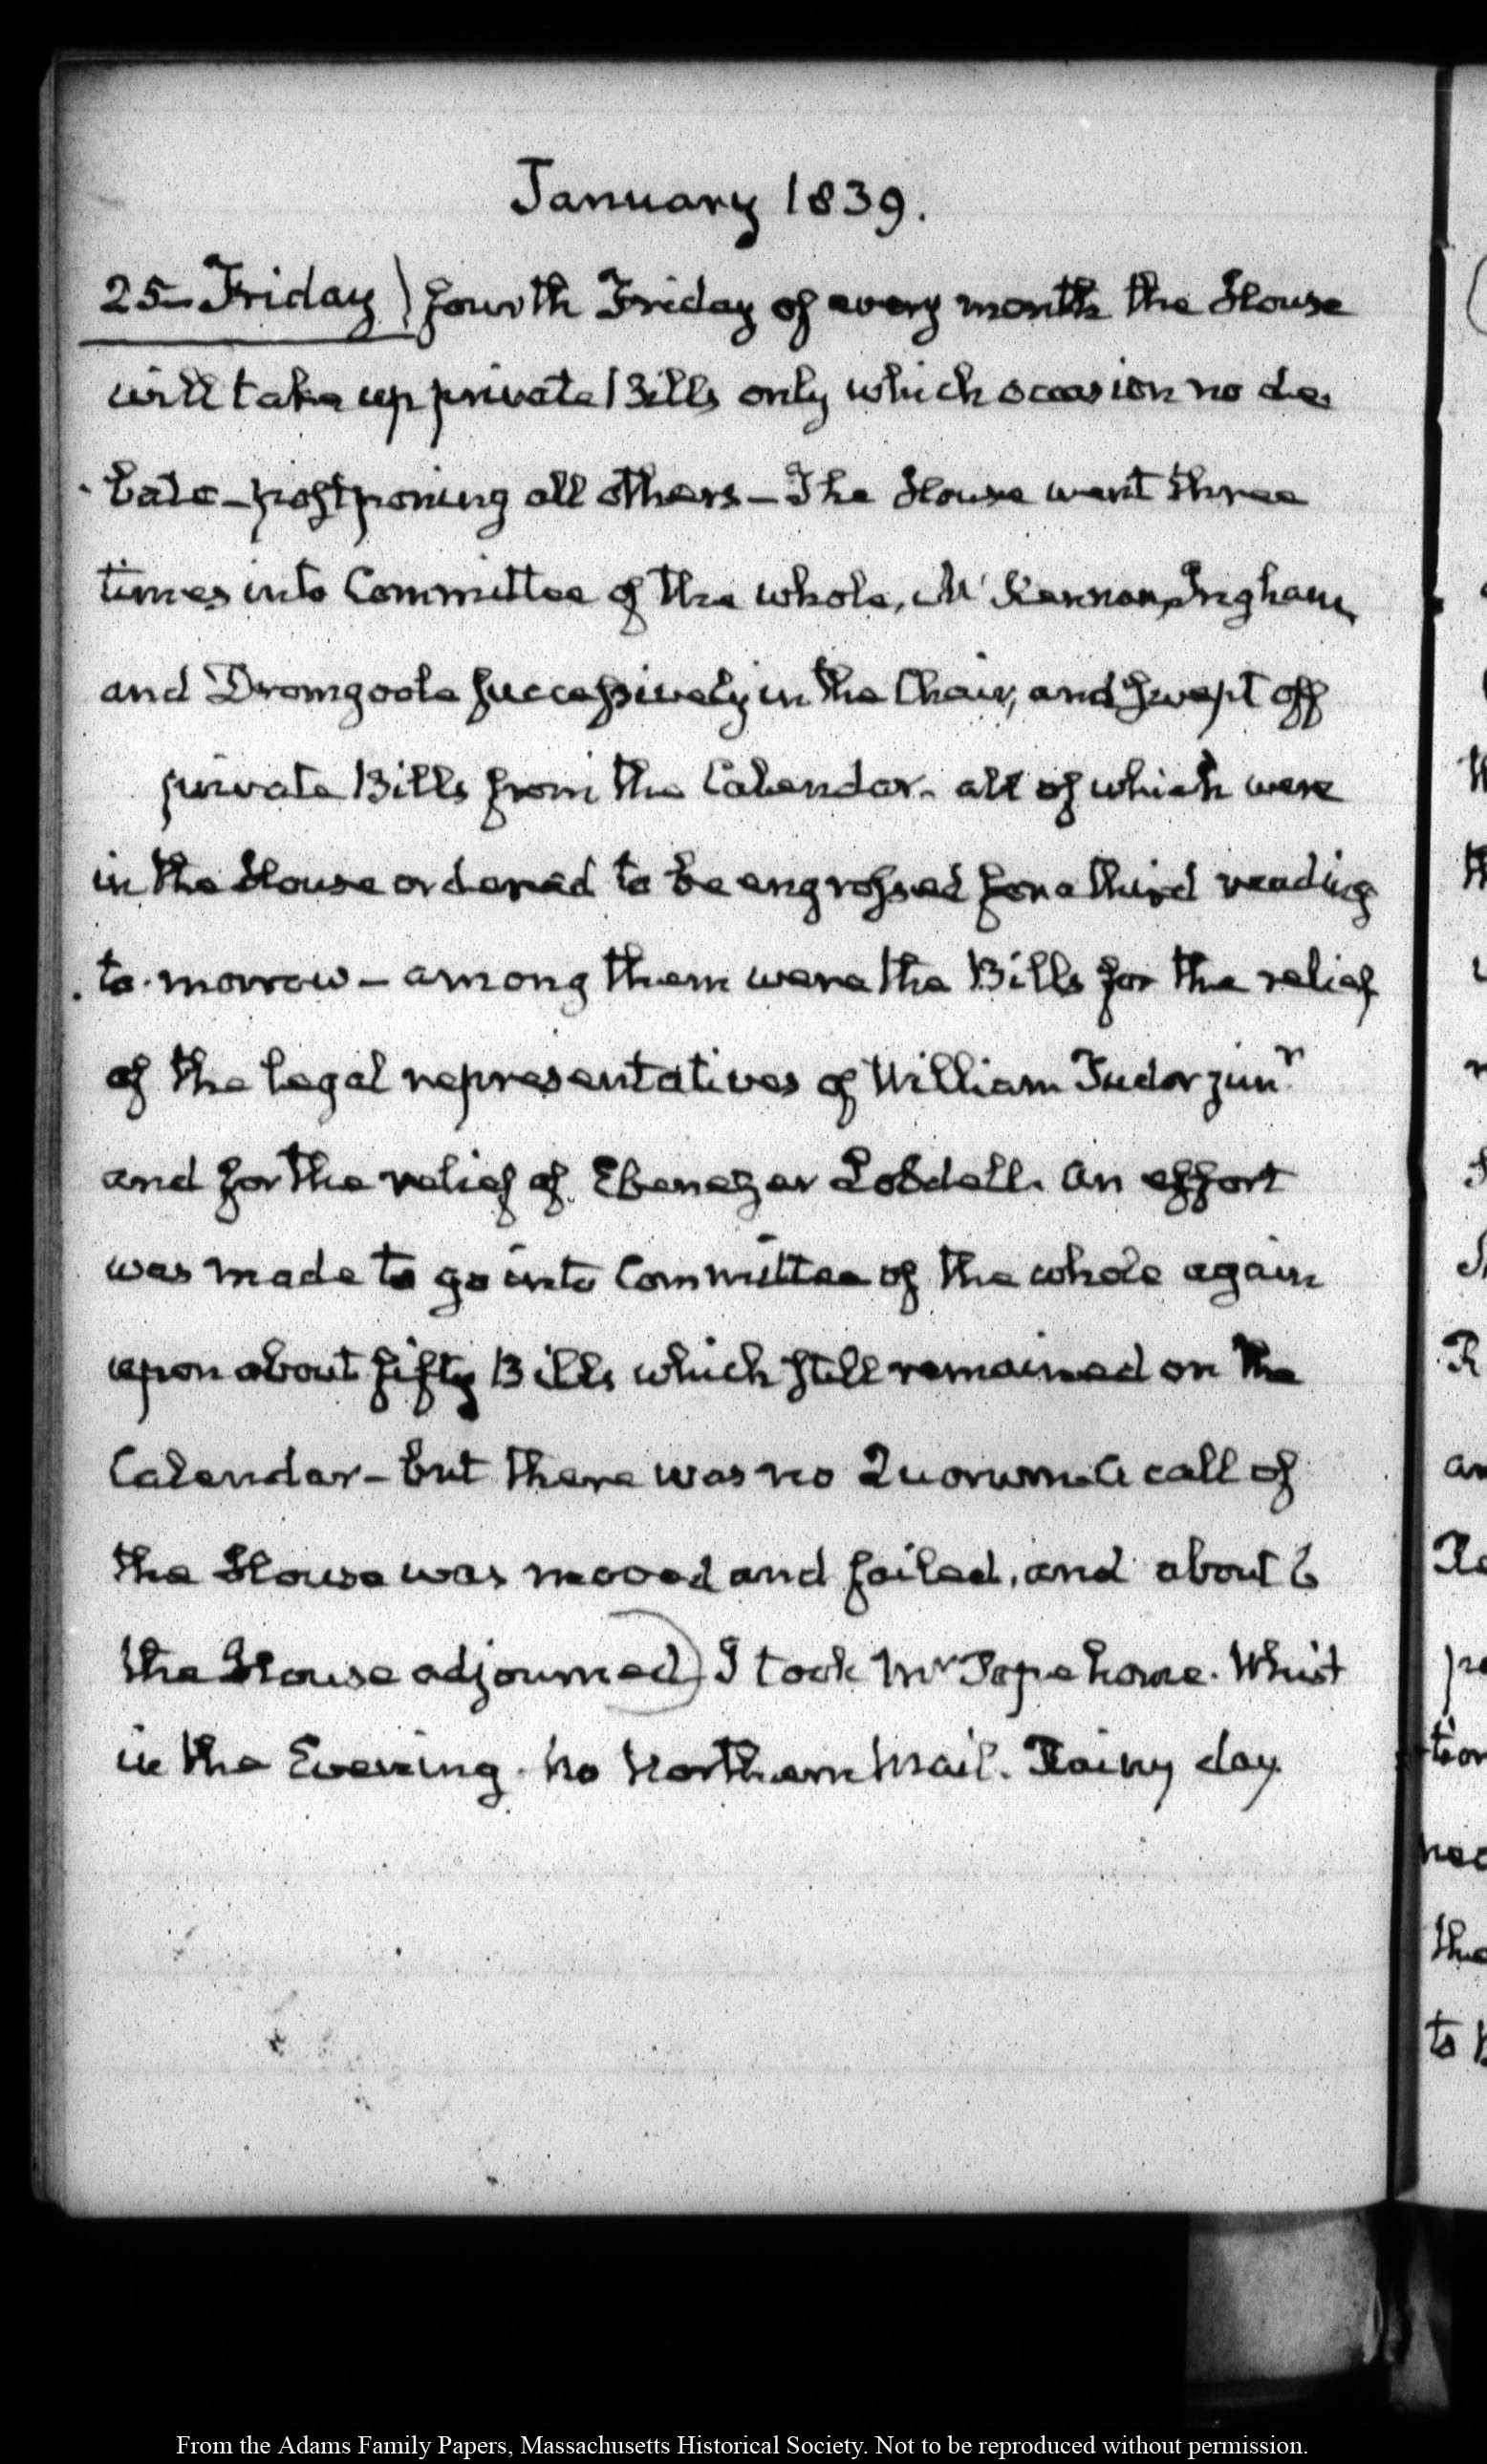 January 1839.
25– Friday) fourth Friday of every month the House
will take up private Bills only which occasion no de
bate – postponing all others – The House went three
times into Committee of the whole, M'Kennan, Ingham
and Dromgoole successively in the Chair, and swept off
private Bills from the Calendar. all of which were
in the House ordered to be engrossed for a third reading
to-morrow – among them were the Bills for the relief
of the legal representatives of William Tudor junr
and for the relief of Ebenezer Lobdell. An effort
was made to go into Committee of the whole again
upon about fifty Bills which still remained on the
Calendar – but there was no Quorum. A call of
the House was moved and failed, and about 6
the House adjourned) I took Mr Pope home. Whist
in the Evening. No Northern Mail. Rainy day
From the Adams Family Papers, Massachusetts Historical Society. Not to be reproduced without permission.